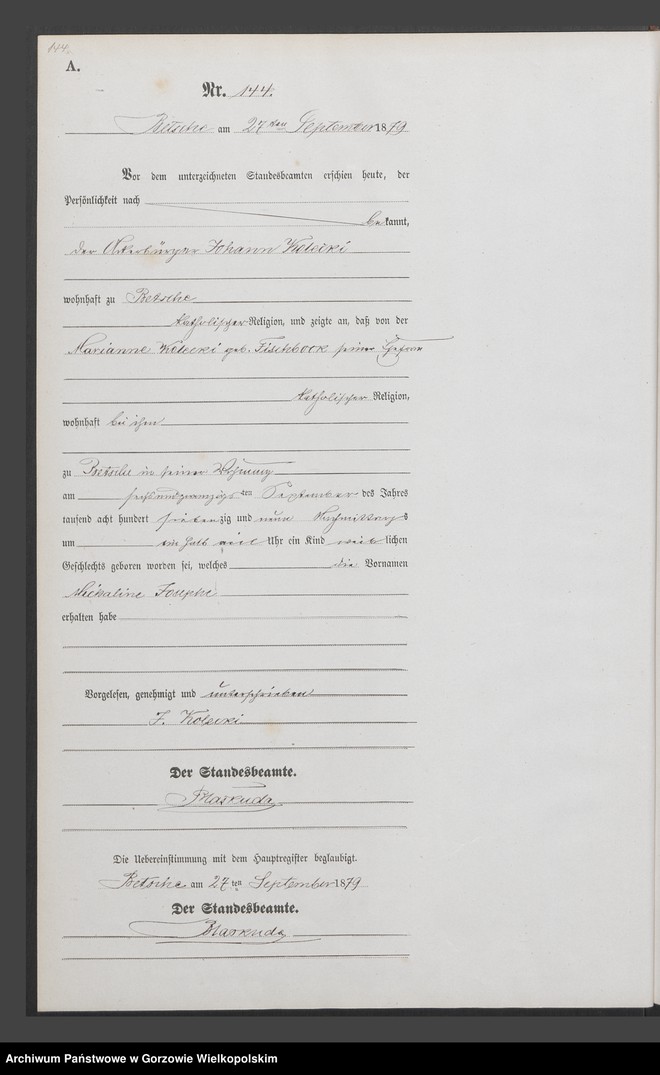 144.
A.
Nr. 144.
Betsche am 27ten September 1879
Vor dem unterzeichneten Standesbeamten erschien heute, der
Persönlichkeit nach
bekannt,
der Ackerbürger Johann Kolecki
wohnhaft zu Betsche
katholischer Religion, und zeigte an, daß von der
Marianne Kolecki geb. Fischbock seiner Ehefrau
katholischer Religion,
wohnhaft bei ihm
zu Betsche in seiner Wohnung
am sechsundzwanzigsten September des Jahres
tausend acht hundert siebenzig und neun Nachmittags
um ein halb Uhr ein Kind weiblichen
Geschlechts geboren worden sei, welches die Vornamen
Michaline Josephe
erhalten habe
Vorgelesen, genehmigt und unterschrieben
J. Kolecki
Der Standesbeamte.
Die Uebereinstimmung mit dem Hauptregister beglaubigt.
Betsche am 27ten September 1879
Der Standesbeamte.
Archiwum Państwowe w Gorzowie Wielkopolskim